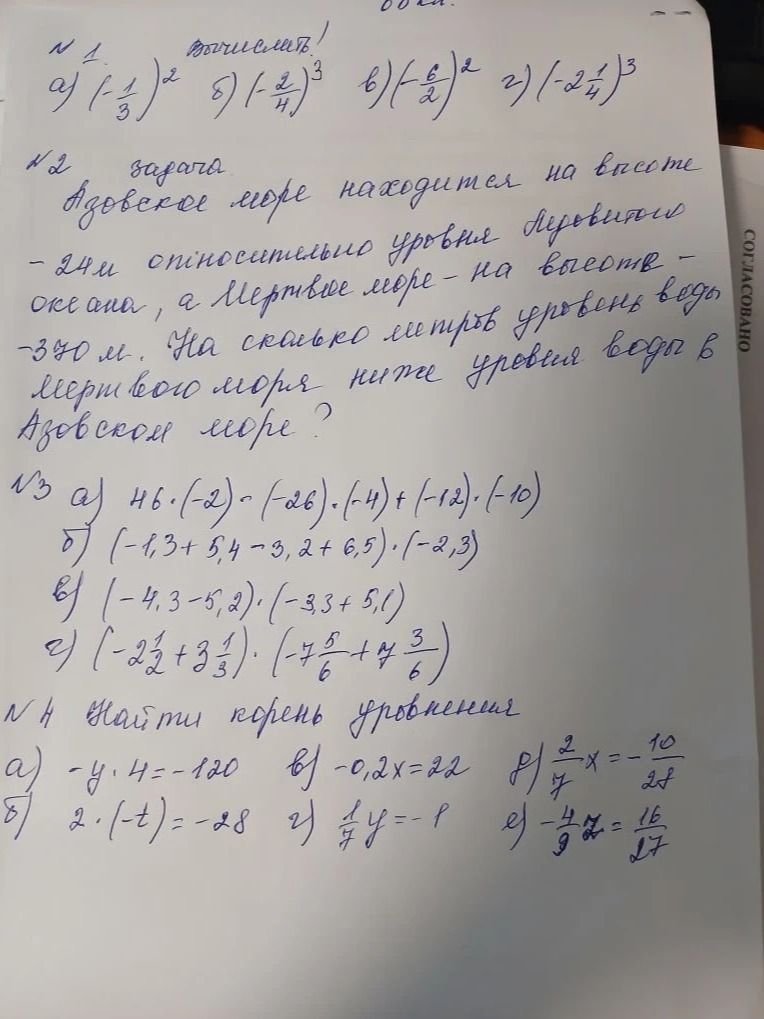 N 1. Вычислить!
а) (-1/3)² б) (-2/4)³ в) (-6/2)² г) (-2 1/4)³
N2 задача
Азовское море находится на высоте
- 24м относительно уровня Ледовитого
океана, а Мертвое море - на высоте -
-370 м. На сколько метров уровень воды
Мертвого моря ниже уровня воды в
Азовском море?
N3 а) 46·(-2) - (-26)·(-4) + (-12)·(-10)
б) (-1,3 + 5,4 - 3,2 + 6,5)·(-2,3)
в) (-4,3 - 5,2)·(-3,3 + 5,1)
г) (-2 1/2 + 3 1/3)·(-7 5/6 + 7 3/6)
N 4 Найти корень уровнения
а) -y·4 = -120 в) -0,2x = 22 д) 2/7 x = - 10/28
б) 2·(-t) = -28 г) 1/7 y = -1 е) -4/9 z = 16/27
СОГЛАСОВАНО